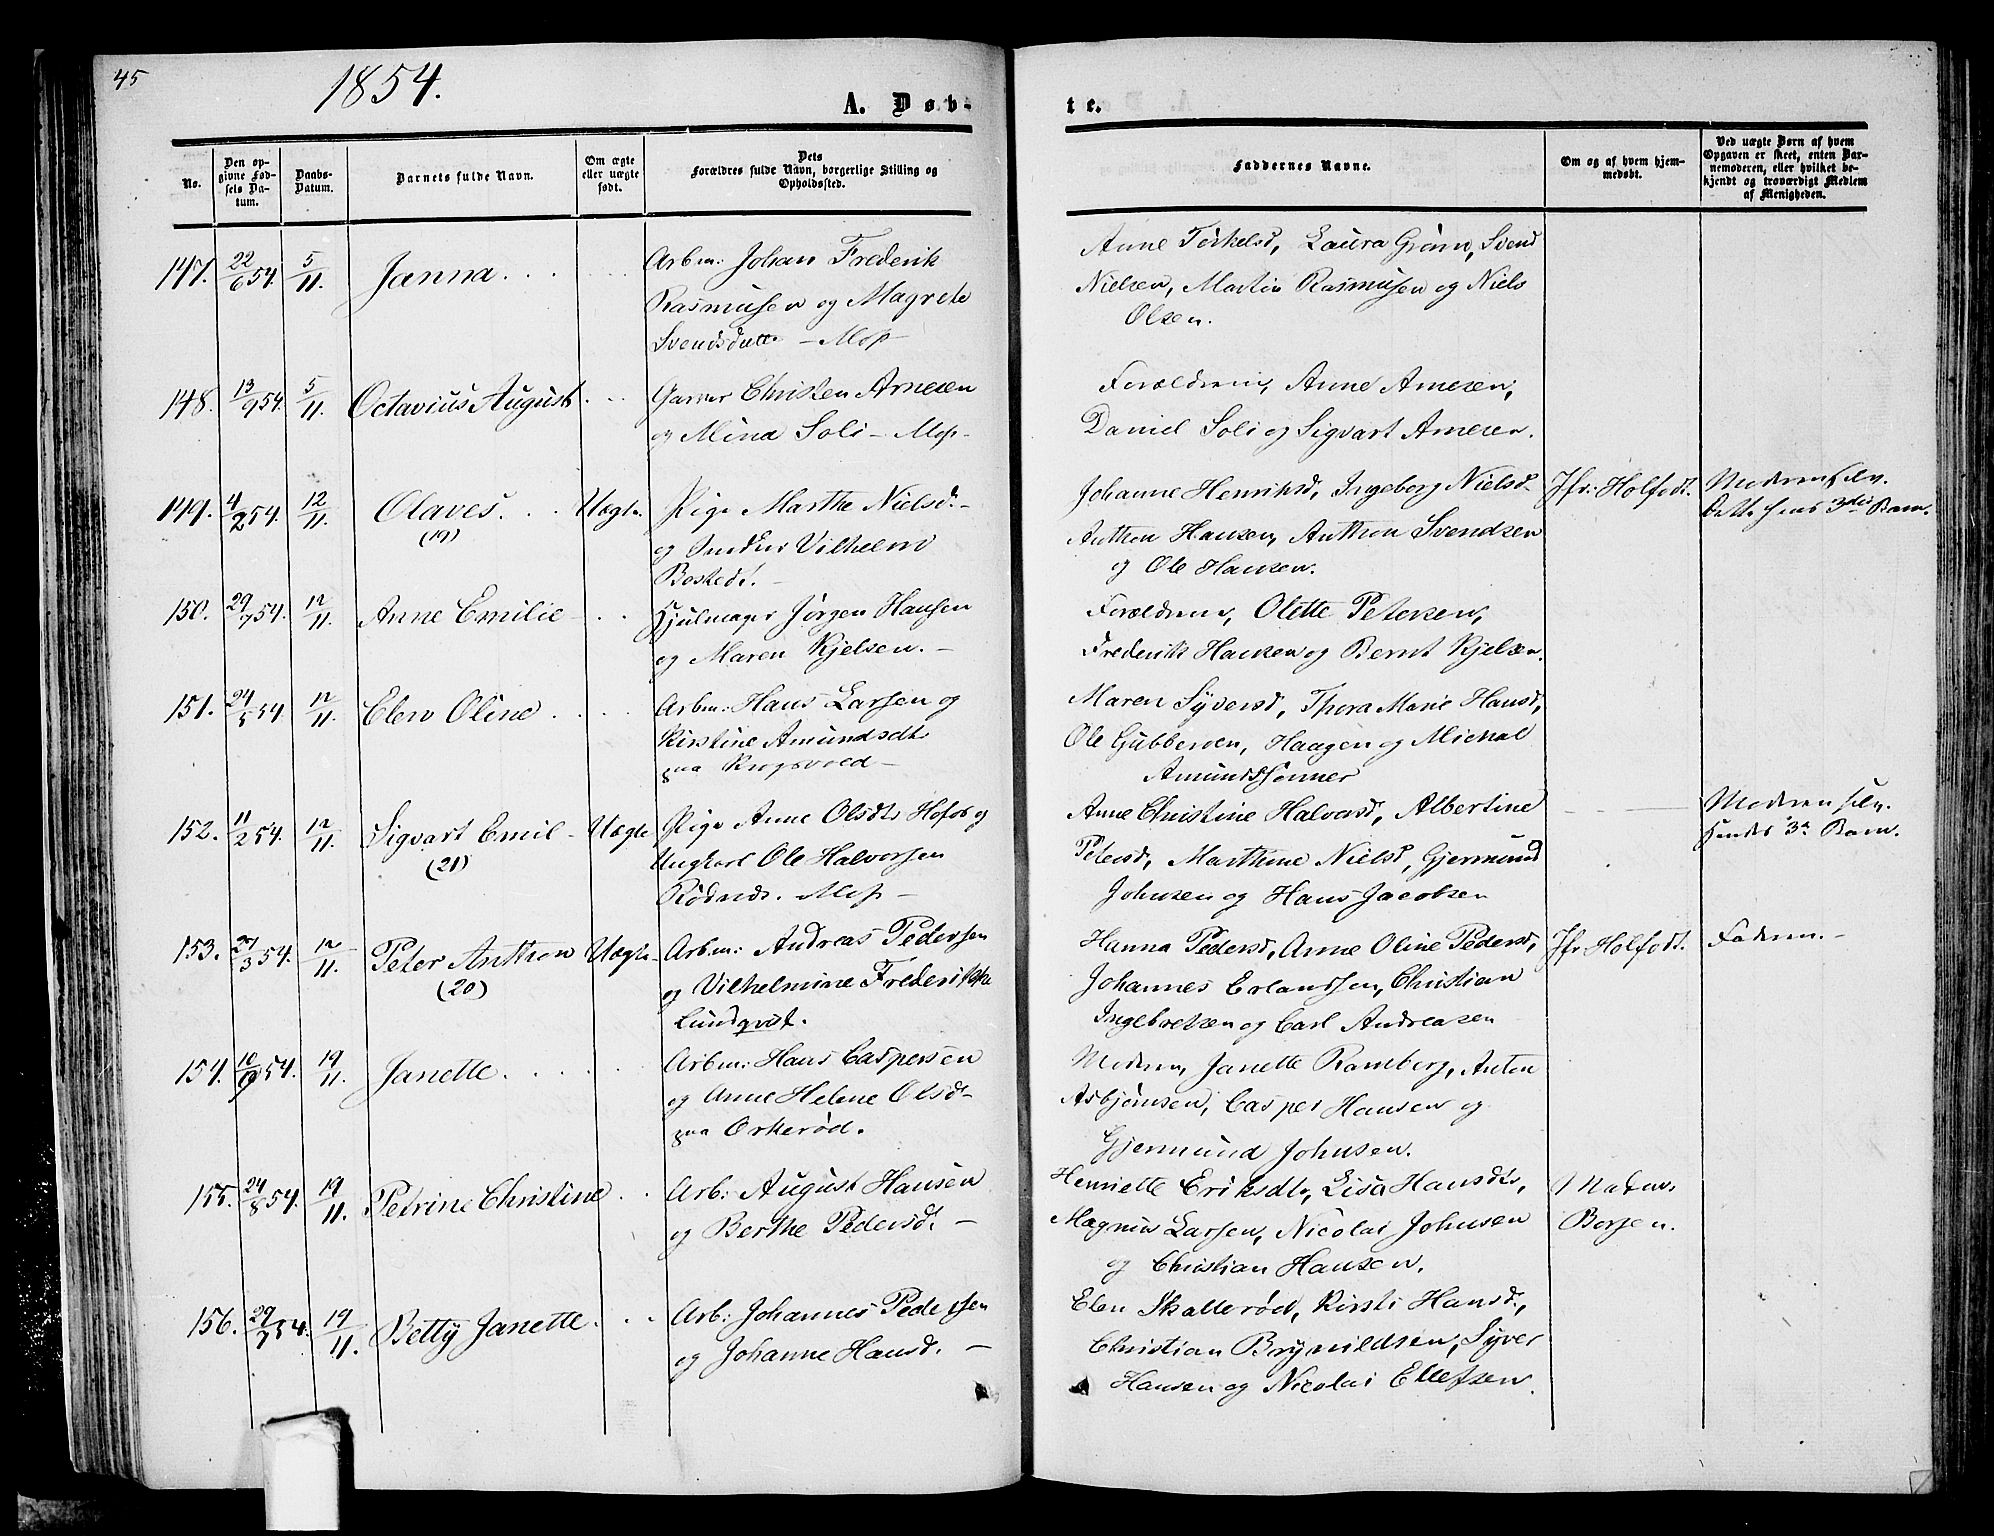 45
1854.
A. Døb-
te.
No.
Den op-
givne Fød-
sels Da-
tum.
Daabs-
Datum.
Barnets fulde Navn.
Om ægte
eller uægte
født.
Dets
Forældres fulde Navn, borgerlige Stilling og
Opholdssted.
Faddernes Navne.
Om og af hvem hjem-
medøbt.
Ved uægte Børn af hvem
Opgaven er skeet, enten Bar-
nemoderen, eller hvilket be-
kjendt og troværdigt Medlem
af Menigheden.
147. 22/6 54. 5/11. Janna. Arbm: Johan Frederik
Rasmusen og Magrete
Svendsdatt. – Mos
Anne Torkelsd, Laura Grønn, Svend
Nielsen, Martin Rasmusen og Niels
Olsen.
148. 13/9 54. 5/11. Octavius August. Garver Christen Arnesen
og Mina Soli – Mos –
Forældrene, Anne Arnesen,
Daniel Soli og Sigvart Arnesen.
149. 4/2 54. 12/11. Olaves. Uægte. Pige Marthe Nielsd. –
(19) og Vilhelm
Bostedt. –
Johanne Henriksd, Ingeborg Nielsd
Anthon Hansen, Anthon Svendsen
og Ole Hansen.
Jfr: Holfodt.
Moderen selv.
Dette hens 3die Barn.
150. 29/7 54. 12/11. Anne Emilie Hjulmager Jørgen Hansen
og Maren Kjelsen. –
Forældrene, Olette Petersen,
Frederik Hansen og Bernt Kjelsen.
151. 24/5 54. 12/11. Elen Oline Arbm: Hans Larsen og
Kirstine Amundsdt
paa Krogsvold –
Maren Syversd, Thora Marie Hansd,
Ole Gubberoen, Haagen og Michal
Amundssønner
152. 11/2 54. 12/11. Sigvart Emil – Uægte Pige Anne Olsdt Hofos og
(21) Ungkarl Ole Halvorsen
Rødsnds. Mos –
Anne Christine Halvorsd, Albertine
Petersd, Marthine Nielsd, Gjermund
Johnsen og Hans Jacobsen
Moderen selv.
Hendes 3e Barn.
153. 27/3 54. 12/11. Peter Anthon Uægte. Arbm: Andreas Pedersen
(20) og Vilhelmine Frederikke
Lundqvist.
Hanna Pedersd, Anne Oline Pedersd,
Johannes Erlandssen, Christian
Ingebretsen og Carl Andreasen
Jfr Holfodt.
Faderen. –
154. 10/9 54. 19/11. Janette. Arbm: Hans Caspersen
og Anne Helene Olsdt
paa Orkerød.
Moderen, Janette Ramberg, Anton
Asbjørnsen, Casper Hansen og
Gjermund Johnsen.
155. 24/8 54. 19/11. Petrine Christine Arb: August Hansen
og Berthe Pedersdt. –
Henriette Eriksdt, Lisa Hansdt,
Magnus Larsen, Nicolai Johnsen
og Christian Hansen.
Madm.
Borsen.
156. 29/7 54. 19/11. Betty Janette. Arb: Johannes Pedersen
og Johanne Hansd. –
Elen Skallerød, Kirsti Hansd.,
Christian Brynildsen, Syver
Hansen og Nicolai Ellefsen.